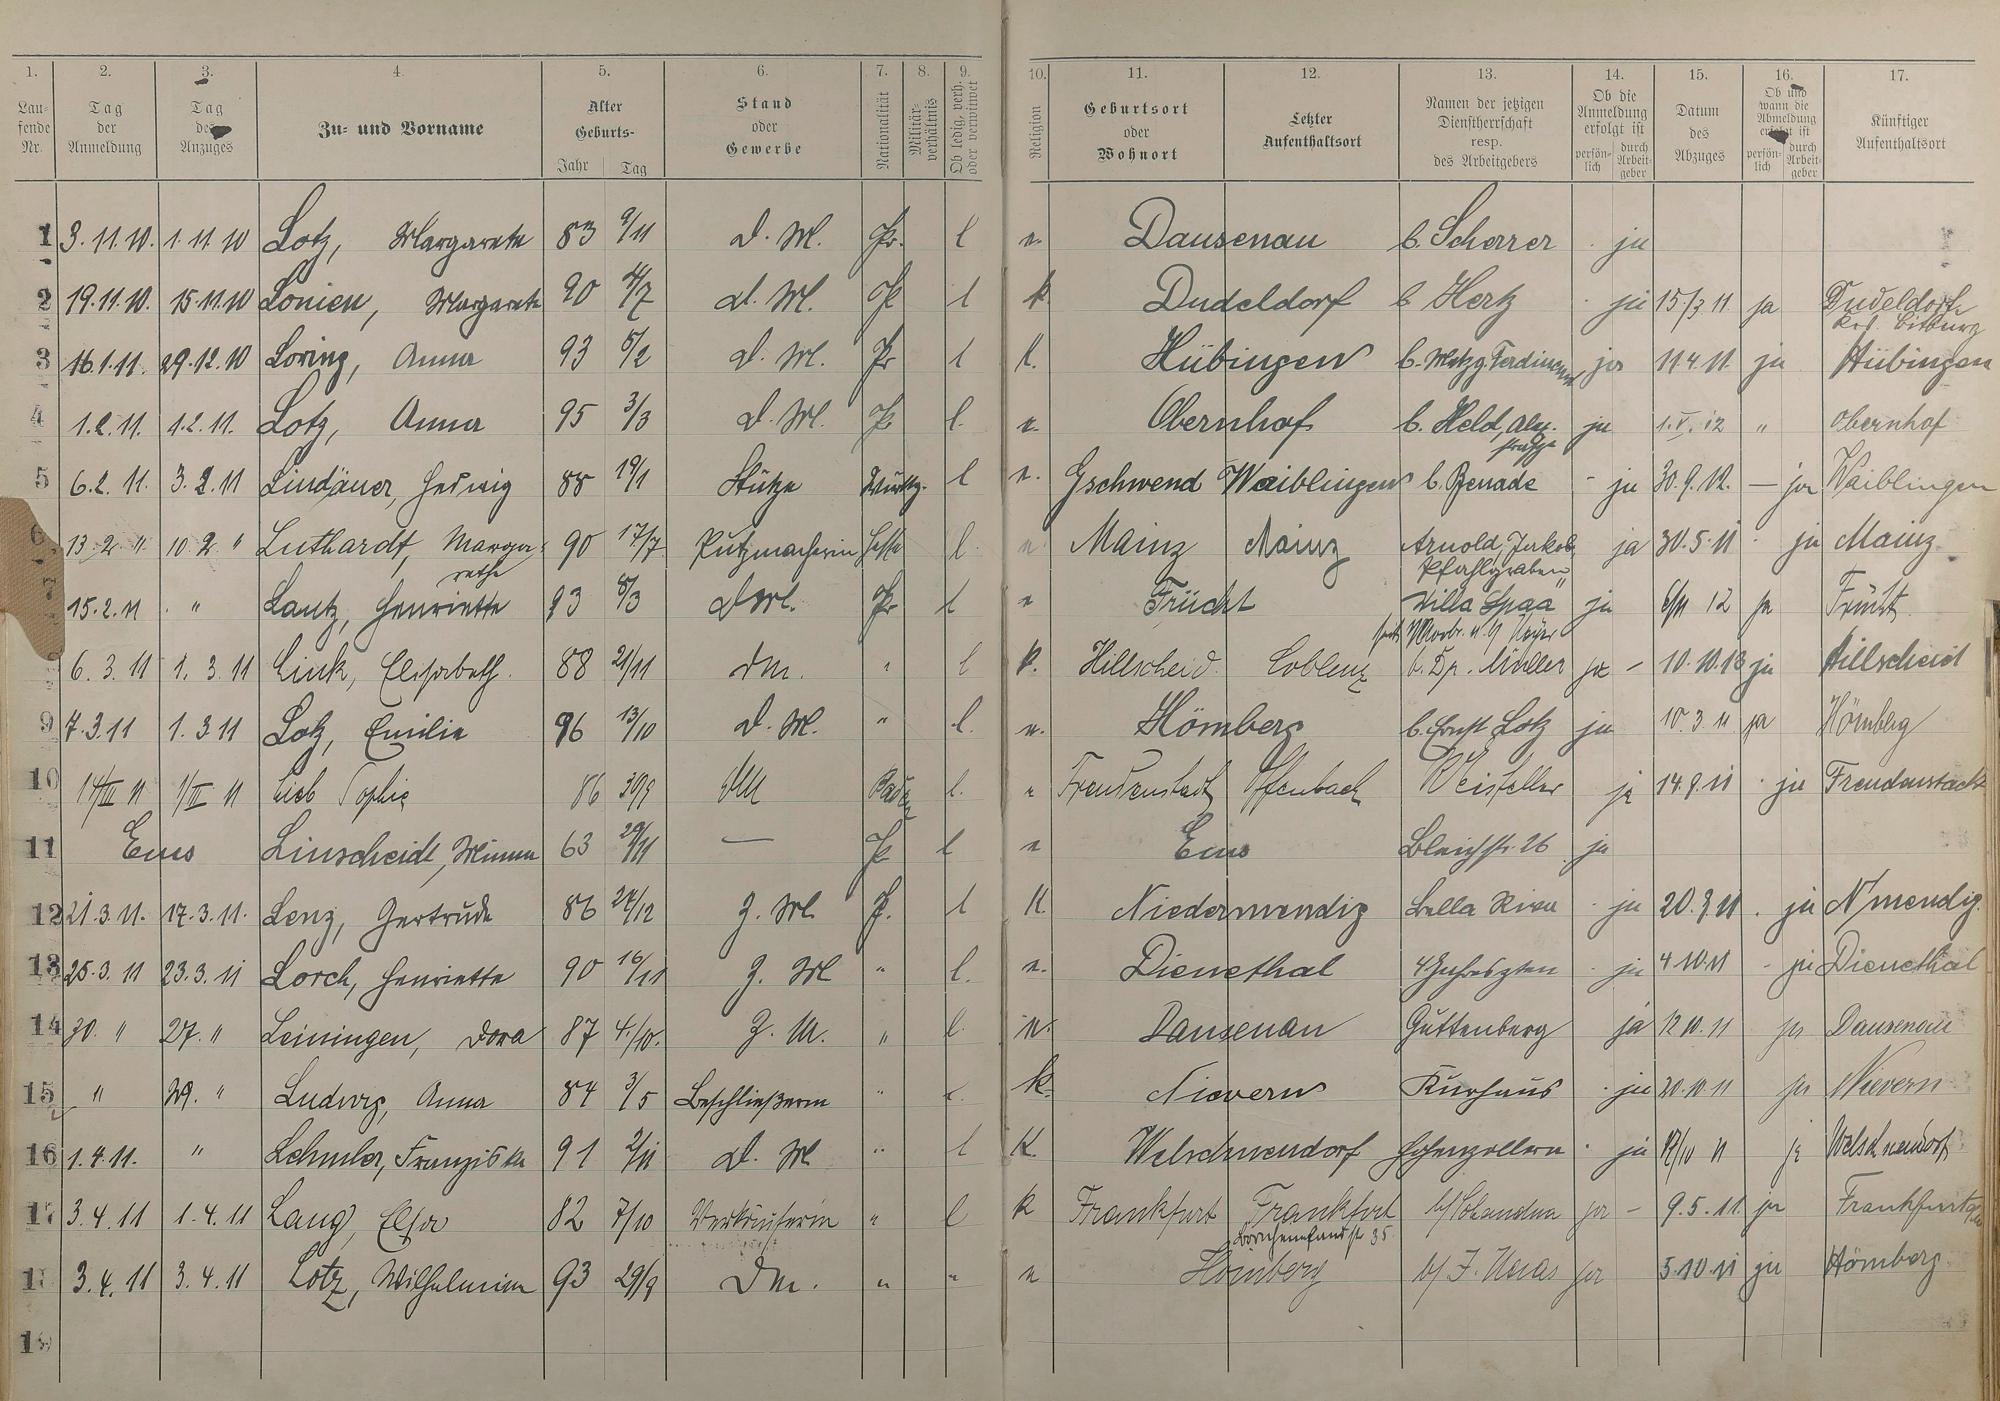 1. 2. 3. 4. 5. 6. 7. 8. 9. 10. 11. 12. 13. 14. 15. 16. 17.
Laufende Nr. Tag der Anmeldung Tag des Anzuges Zu- und Vorname Alter Geburts- Jahr Tag Stand oder Gewerbe Nationalität Militärverhältnis Ob ledig, verh. oder verwitwet Religion Geburtsort oder Wohnort Letzter Aufenthaltsort Namen der jetzigen Dienstherrschaft resp. des Arbeitgebers Ob die Anmeldung erfolgt ist persönlich durch Arbeitgeber Datum des Abzuges Ob und wann die Abmeldung erfolgt ist persönlich durch Arbeitgeber Künftiger Aufenthaltsort
1 3.11.10. 1.11.10 Lotz, Margarete 83 9/11 D. M. Pr. l e. Dausenau b. Scherrer ja
2 19.11.10. 15.11.10 Lonien, Margarete 90 4/7 D. M. Pr l k. Dudeldorf b Hertz ja 15/3 11 ja Dudeldorf
Krs. Bitburg
3 16.1.11. 29.12.10 Loring, Anna 93 5/2 D. M. Pr l K. Hübingen b. Metzg. Ferdinand ja 11.4.11. ja Hübingen
4 1.2.11. 1.2.11. Lotz, Anna 95 3/3 D. M. Pr l. e. Obernhof b. Held, ja 1.V.12 " Obernhof
5 6.2.11. 3.2.11 Lindäuer, Hedwig 88 19/1 Stütze Württg. l e. Gschwend Waiblingen b. Benade - ja 30.9.12. — ja Waiblingen
6 13.2. " 10.2 " Luthardt, Marga- 90 17/7 Putzmacherin Hesse l. e. Mainz Mainz Arnold, Jakob ja 30.5.11 ja Mainz
rethe Pfahlgraben
15.2.11 " Lautz, Henriette 93 5/3 D.M. Pr l e Frücht Villa Spaa ja 12 ja Frücht
6.3.11 1.3.11 Link, Elisabeth. 88 21/11 DM. " l k. Hillscheid Coblenz b. Dr. Müller ja - 10.10.13 ja Hillscheid
9 7.3.11 1.3 11 Lotz, Emilie 96 13/10 D. M. " l. e. Hömberg b. Ernst Lotz ja 10.3.11 ja Hömberg
10 14/III 11 1/III 11 Lieb Sophie 86 30/9 DM Baden l. e Freudenstadt Offenbach ja 14.9.11 ja Freudenstadt
11 Ems Linscheidt, Minna 63 29/11 — Pr l e Ems Bleichstr. 26 ja
12 21.3.11. 17.3.11. Lenz, Gertrude 86 24/12 Z. M. P. l K. Niedermendig Bella Riva ja 20.9.11 ja N'mendig.
13 25.3.11 23.3.11 Lorch, Henriette 90 16/11 Z. M " l. e. Dienethal 4 Jahreszten ja 4.10.11 ja Dienethal
14 30. " 27. " Leiningen, Dora 87 4./10. Z. M. " l. e. Dausenau Guttenberg ja 12.10.11 ja Dausenau
15 " 29. " Ludwig, Anna 84 3/5 Beschließerin " l. k. Nievern Kurhaus ja 20.10.11 ja Nievern
16 1.4.11. " Lehmler, Franziska 91 2/11 D. M " l K. Welschneudorf Hohenzollern ja 12/10 11 ja Welschneudorf
17 3.4.11 1.4.11 Lang, Elsa 82 7/10 Verkäuferin " l k Frankfurt Frankfurt ja - 9.5.11. ja Frankfurt
35
18 3.4.11 3.4.11 Lotz, Wilhelmine 93 29/9 DM. " " e Hömberg ja 5.10.11 ja Hömberg.
19